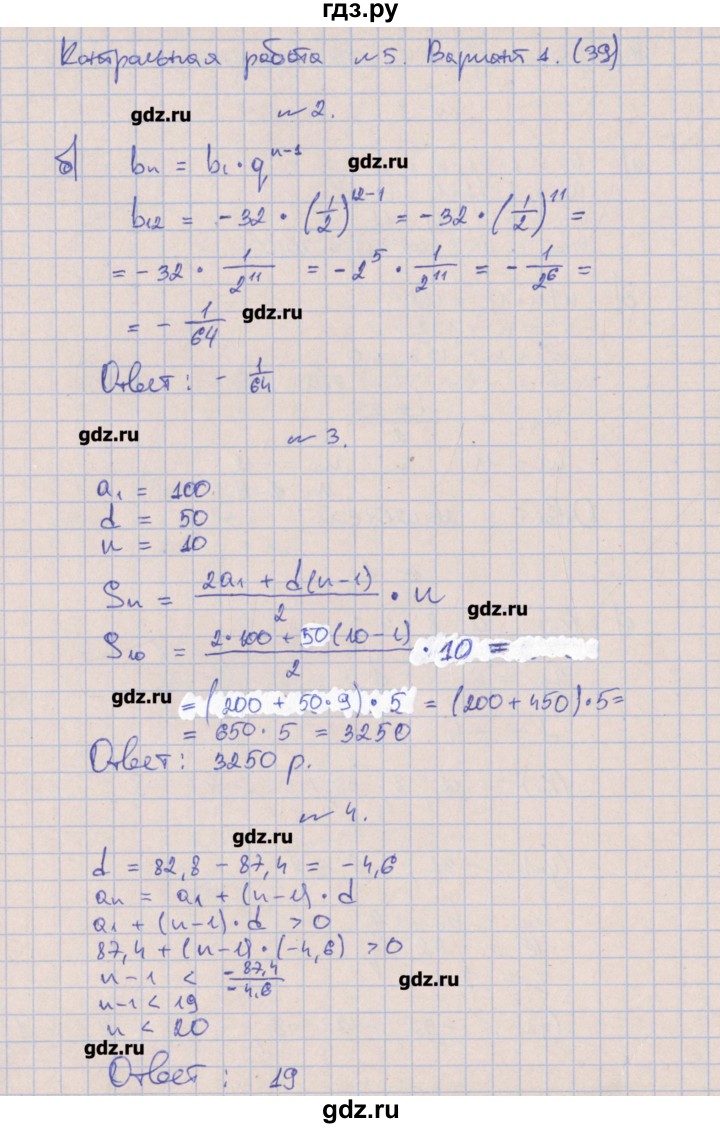 гдз.ру
Контрольная работа №5. Вариант 1. (39)
gdz.ru
№2.
б) bn = b1 · q^(n-1)
gdz.ru
b12 = -32 · (1/2)^(12-1) = -32 · (1/2)^11 =
= -32 · 1/2^11 = -2^5 · 1/2^11 = - 1/2^6 =
= - 1/64
gdz.ru
Ответ: - 1/64
gdz.ru
№3.
a1 = 100.
d = 50
n = 10
Sn = (2a1 + d(n-1))/2 · n
gdz.ru
S10 = (2·100 + 50(10-1))/2 · 10 =
gdz.ru
= (200 + 50·9) · 5 = (200 + 450)·5=
= 650 · 5 = 3250
Ответ: 3250 р.
№4.
gdz.ru
d = 82,8 - 87,4 = -4,6
an = a1 + (n-1) · d
a1 + (n-1) · d > 0
87,4 + (n-1) · (-4,6) > 0
n-1 < -87,4/-4,6
gdz.ru
n-1 < 19
n < 20
gdz.ru
Ответ: 19
gdz.ru